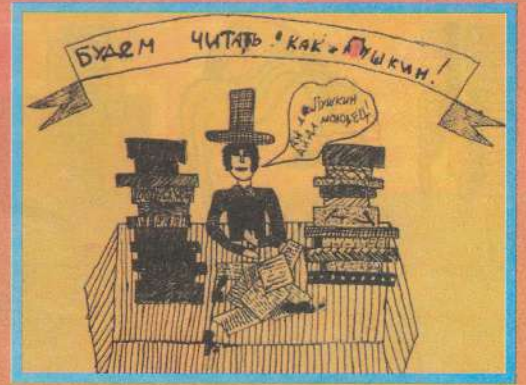 БУДЕМ ЧИТАТЬ КАК ПУШКИН!
Пушкин
МОЛОДЕЦ!